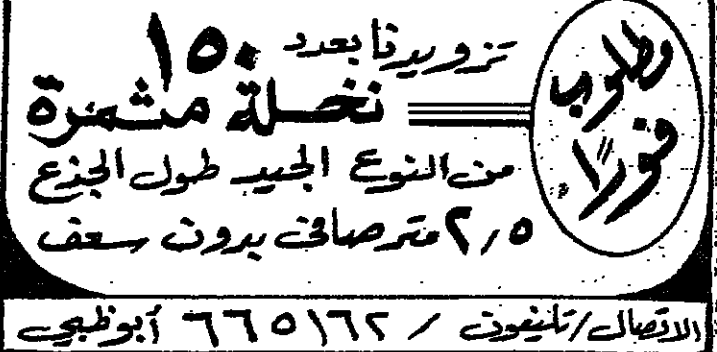 مطلوب
فوراً
تزويدنا بعدد ١٥٠
نخلة مثمرة
من النوع الجيد طول الجذع
٢,٥ متر صافى بدون سعف
الاتصال / تليفون / ٦٦٥١٦٢ أبوظبي